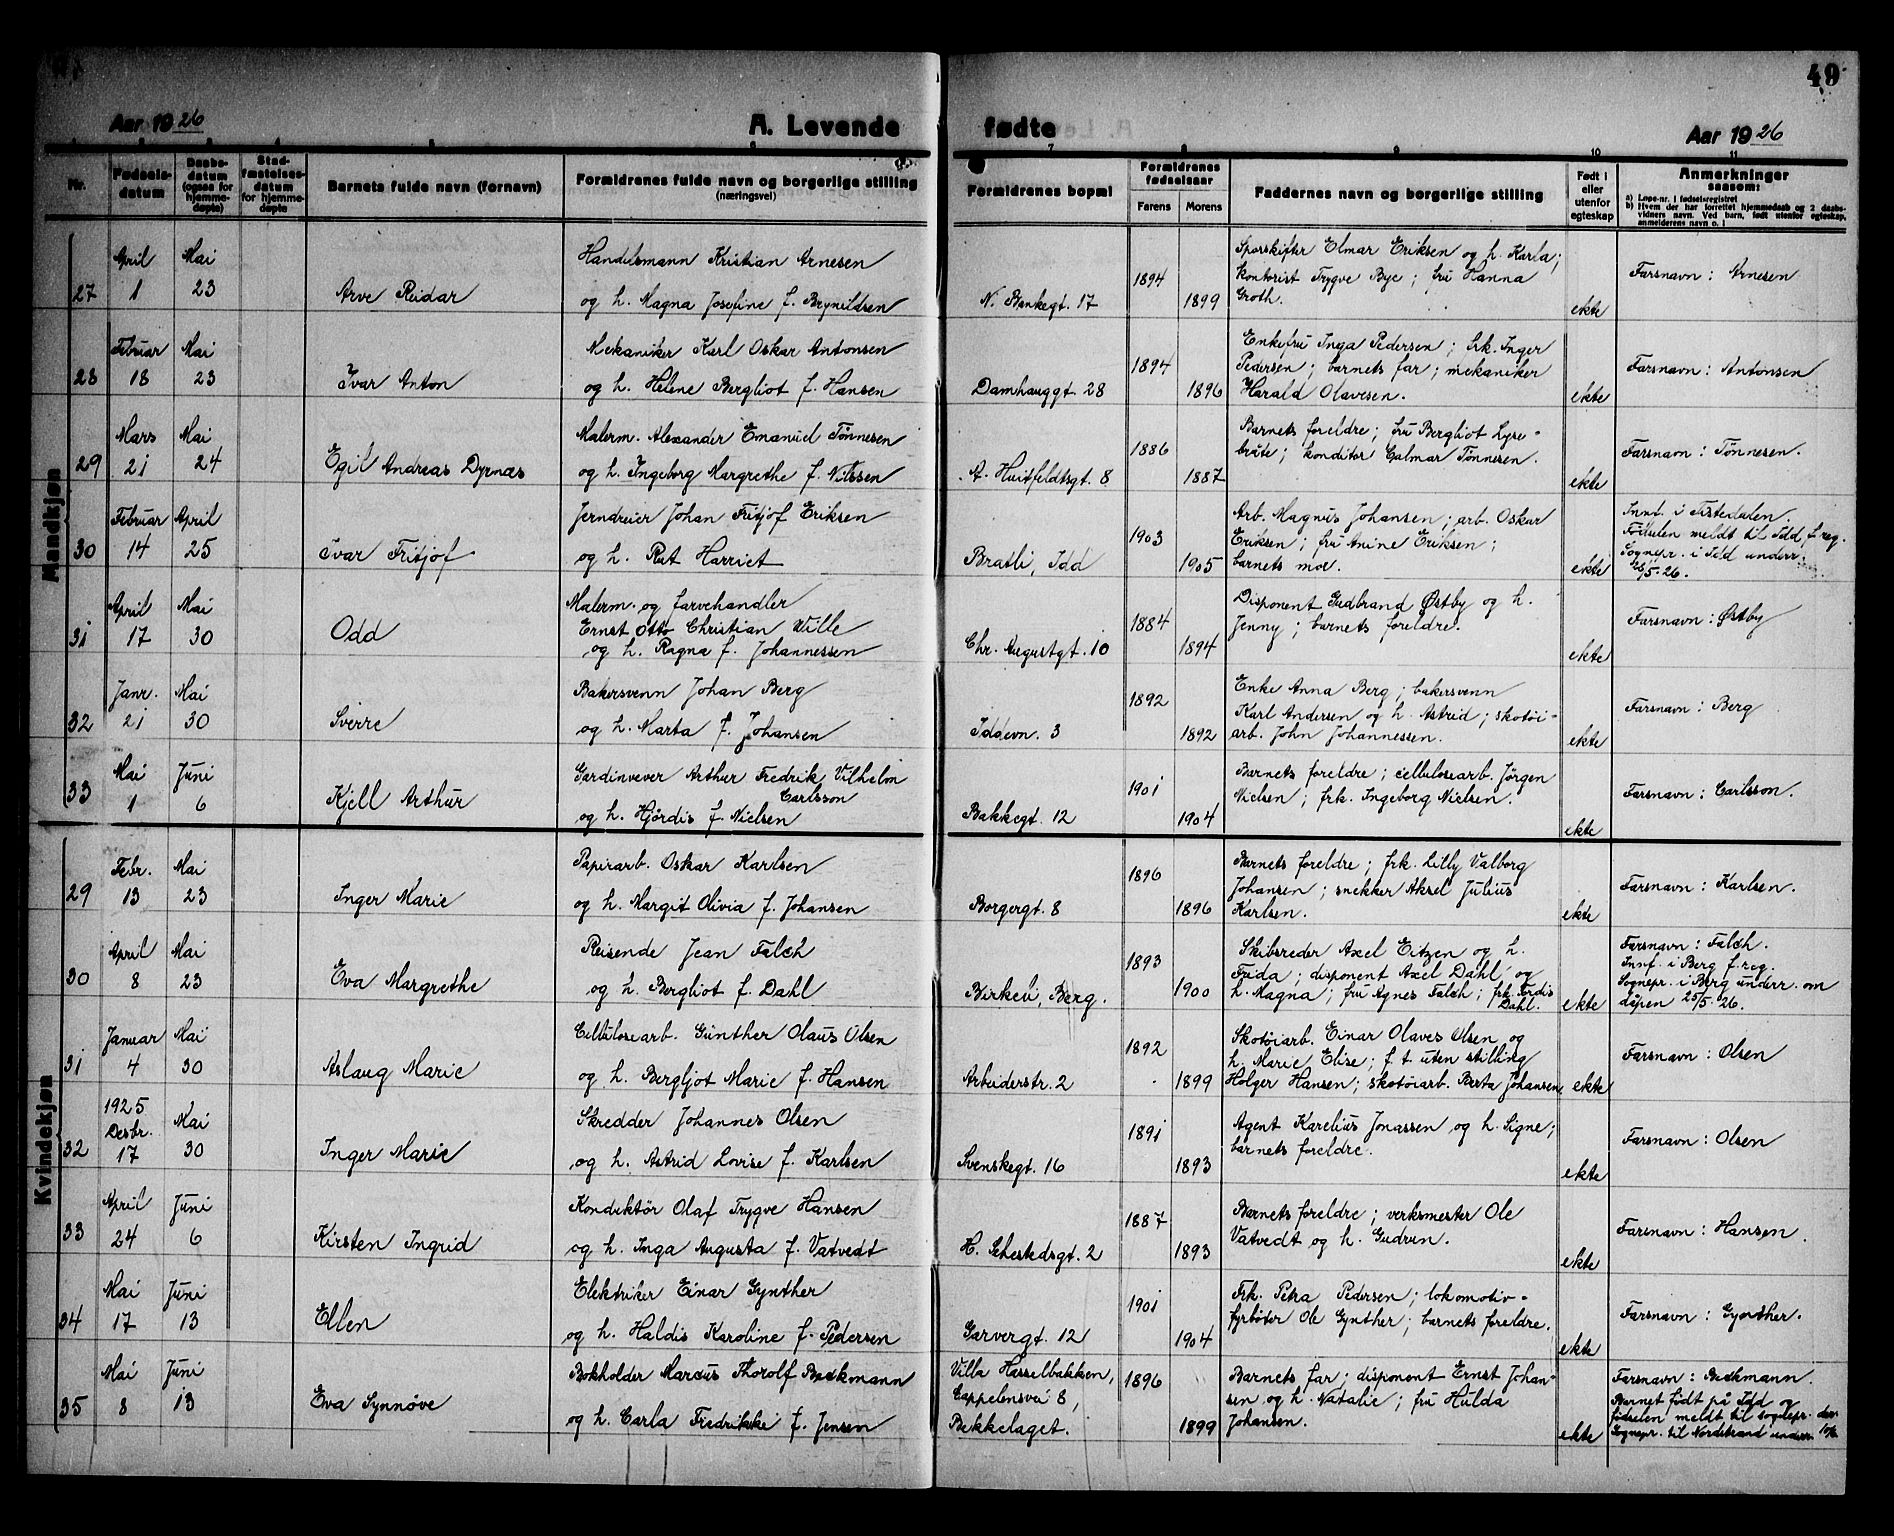 49
Aar 1926 A. Levende fødte Aar 1926
Nr.
Fødsels-
datum
Daabs-
datum
(ogsaa for
hjemme-
døpte)
Stad-
fæstelses-
datum
for hjemme-
døpte
Barnets fulde navn (fornavn)
Forældrenes fulde navn og borgerlige stilling
(næringsvei)
Forældrenes bopæl
Forældrenes
fødselsaar
Farens Morens
Faddernes navn og borgerlige stilling
Født i
eller
utenfor
egteskap
Anmerkninger
saasom:
a) Løpe-nr. i fødselsregistret
b) Hvem der har forrettet hjemmedaab og 2 daabs-
vidners navn. Ved barn, født utenfor egteskap,
anmelderens navn o. l
Mandkjøn
27 April 1 Mai 23 Arve Reidar
Handelsmann Kristian Arnesen
og h. Magna Josefine f. Brynildsen
N. Bankegt. 17 1894 1899
Sporskifter Elmar Eriksen og h. Karla;
kontorist Trygve Bye; fru Hanna
Groth.
ekte Farsnavn: Arnesen
28 Februar 18 Mai 23 Ivar Anton
Mekaniker Karl Oskar Antonsen
og h. Helene Bergliot f. Hansen
Damhauggt. 28 1894 1896
Enkefru Inga Pedersen; frk. Inger
Pedersen; barnets far; mekaniker
Harald Olavesen.
ekte Farsnavn: Antonsen
29 Mars 21 Mai 24 Egil Andreas Dyrnæs
Malerm. Alexander Emanuel Tønnesen
og h. Ingeborg Margrethe f. Nilssen
A. Huitfeldtsgt. 8 1886 1887
Barnets foreldre; fru Bergliot Lyse-
bråte; konditor Galmar Tønnesen.
ekte Farsnavn: Tønnesen.
30 Februar 14 April 25 Ivar Fritjof
Jerndreier Johan Fritjof Eriksen
og h. Rut Harriet
Bratli, Idd 1903 1905
Arb. Magnus Johansen; arb. Oskar
Eriksen; fru Anine Eriksen;
barnets mor.
ekte Innf. i Tistedalen
Fødselen meldt til Idd f. reg.
Sognepr. i Idd underr.
/5-26.
31 April 17 Mai 30 Odd
Malerm. og farvehandler
Ernst Otto Christian Wille
og h. Ragna f. Johannessen
Chr. Augustgt. 10 1884 1894
Disponent Gudbrand Østby og h.
Jenny; barnets foreldre.
ekte Farsnavn: Østby
32 Janr. 21 Mai 30 Sverre
Bakersvenn Johan Berg
og h. Marta f. Johansen
Iddevn. 3 1892 1892
Enke Anna Berg; bakersvenn
Karl Andersen og h. Astrid; skotøi-
arb. John Johannessen.
ekte Farsnavn: Berg
33 Mai 1 Juni 6 Kjell Arthur
Gardinvever Arthur Fredrik Vilhelm
Carlsson
og h. Hjørdis f. Nielsen
Bakkegt. 12 1901 1904
Barnets foreldre; cellulosearb. Jörgen
Nielsen; frk. Ingeborg Nielsen.
ekte Farsnavn: Carlsson.
Kvindekjøn
29 Febr. 13 Mai 23 Inger Marie
Papirarb. Oskar Karlsen
og h. Margit Olivia f. Johansen
Borgergt. 8 1896 1896
Barnets foreldre; frk. Lilly Valborg
Johansen; snekker Aksel Julius
Karlsen.
ekte Farsnavn: Karlsen.
30 April 8 Mai 23 Eva Margrethe
Reisende Jean Falch
og h. Bergliot f. Dahl
Birkeli, Berg. 1893 1900
Skibsreder Axel Eitzen og h.
Frida; disponent Axel Dahl og
h. Magna; fru Agnes Falch; frk. Tordis
Dahl.
ekte Farsnavn: Falch.
Innf. i Berg f. reg.
Sognepr. i Berg underr. om
dåpen 25/5-26.
31 Januar 4 Mai 30 Aslaug Marie
Cellulosearb. Günther Olaus Olsen
og h. Bergljot Marie f. Hansen
Arbeiderstr. 2 1892 1899
Skotøiarb. Einar Olaves Olsen og
h. Marie Elise; f. t. uten stilling
Holger Hansen; skotøiarb. Berta Johansen
ekte Farsnavn: Olsen
32 1925 Desbr. 17 Mai 30 Inger Marie
Skredder Johannes Olsen
og h. Astrid Lovise f. Karlsen
Svenskegt. 16 1891 1893
Agent Karelius Jonassen og h. Signe;
barnets foreldre.
ekte Farsnavn: Olsen
33 April 24 Juni 6 Kirsten Ingrid
Konduktör Olaf Trygve Hansen
og h. Inga Augusta f. Vatvedt
H. Sehestedsgt. 2 1887 1893
Barnets foreldre; verksmester Ole
Vatvedt og h. Gudrun.
ekte Farsnavn: Hansen.
34 Mai 17 Juni 13 Ellen
Elektriker Einar Gynther
og h. Haldis Karoline f. Pedersen
Garvergt. 12 1901 1904
Frk. Petra Pedersen; lokomotiv-
fyrbøter Ole Gynther; barnets foreldre.
ekte Farsnavn: Gynther.
35 Mai 8 Juni 13 Eva Synnöve
Bokholder Marcus Thorolf Beckmann
og h. Carla Fredrikke f. Jensen
Villa Hasselbakken,
Cappelensvei 8,
Bekkelaget. 1896 1899
Barnets far; disponent Ernst Johan-
sen og h. Natalie; fru Hulda
Johansen.
ekte Farsnavn: Beckmann.
Barnet født på Idd og
fødselen meldt til sognepr. der.
Sognepr. til Nordstrand underr.